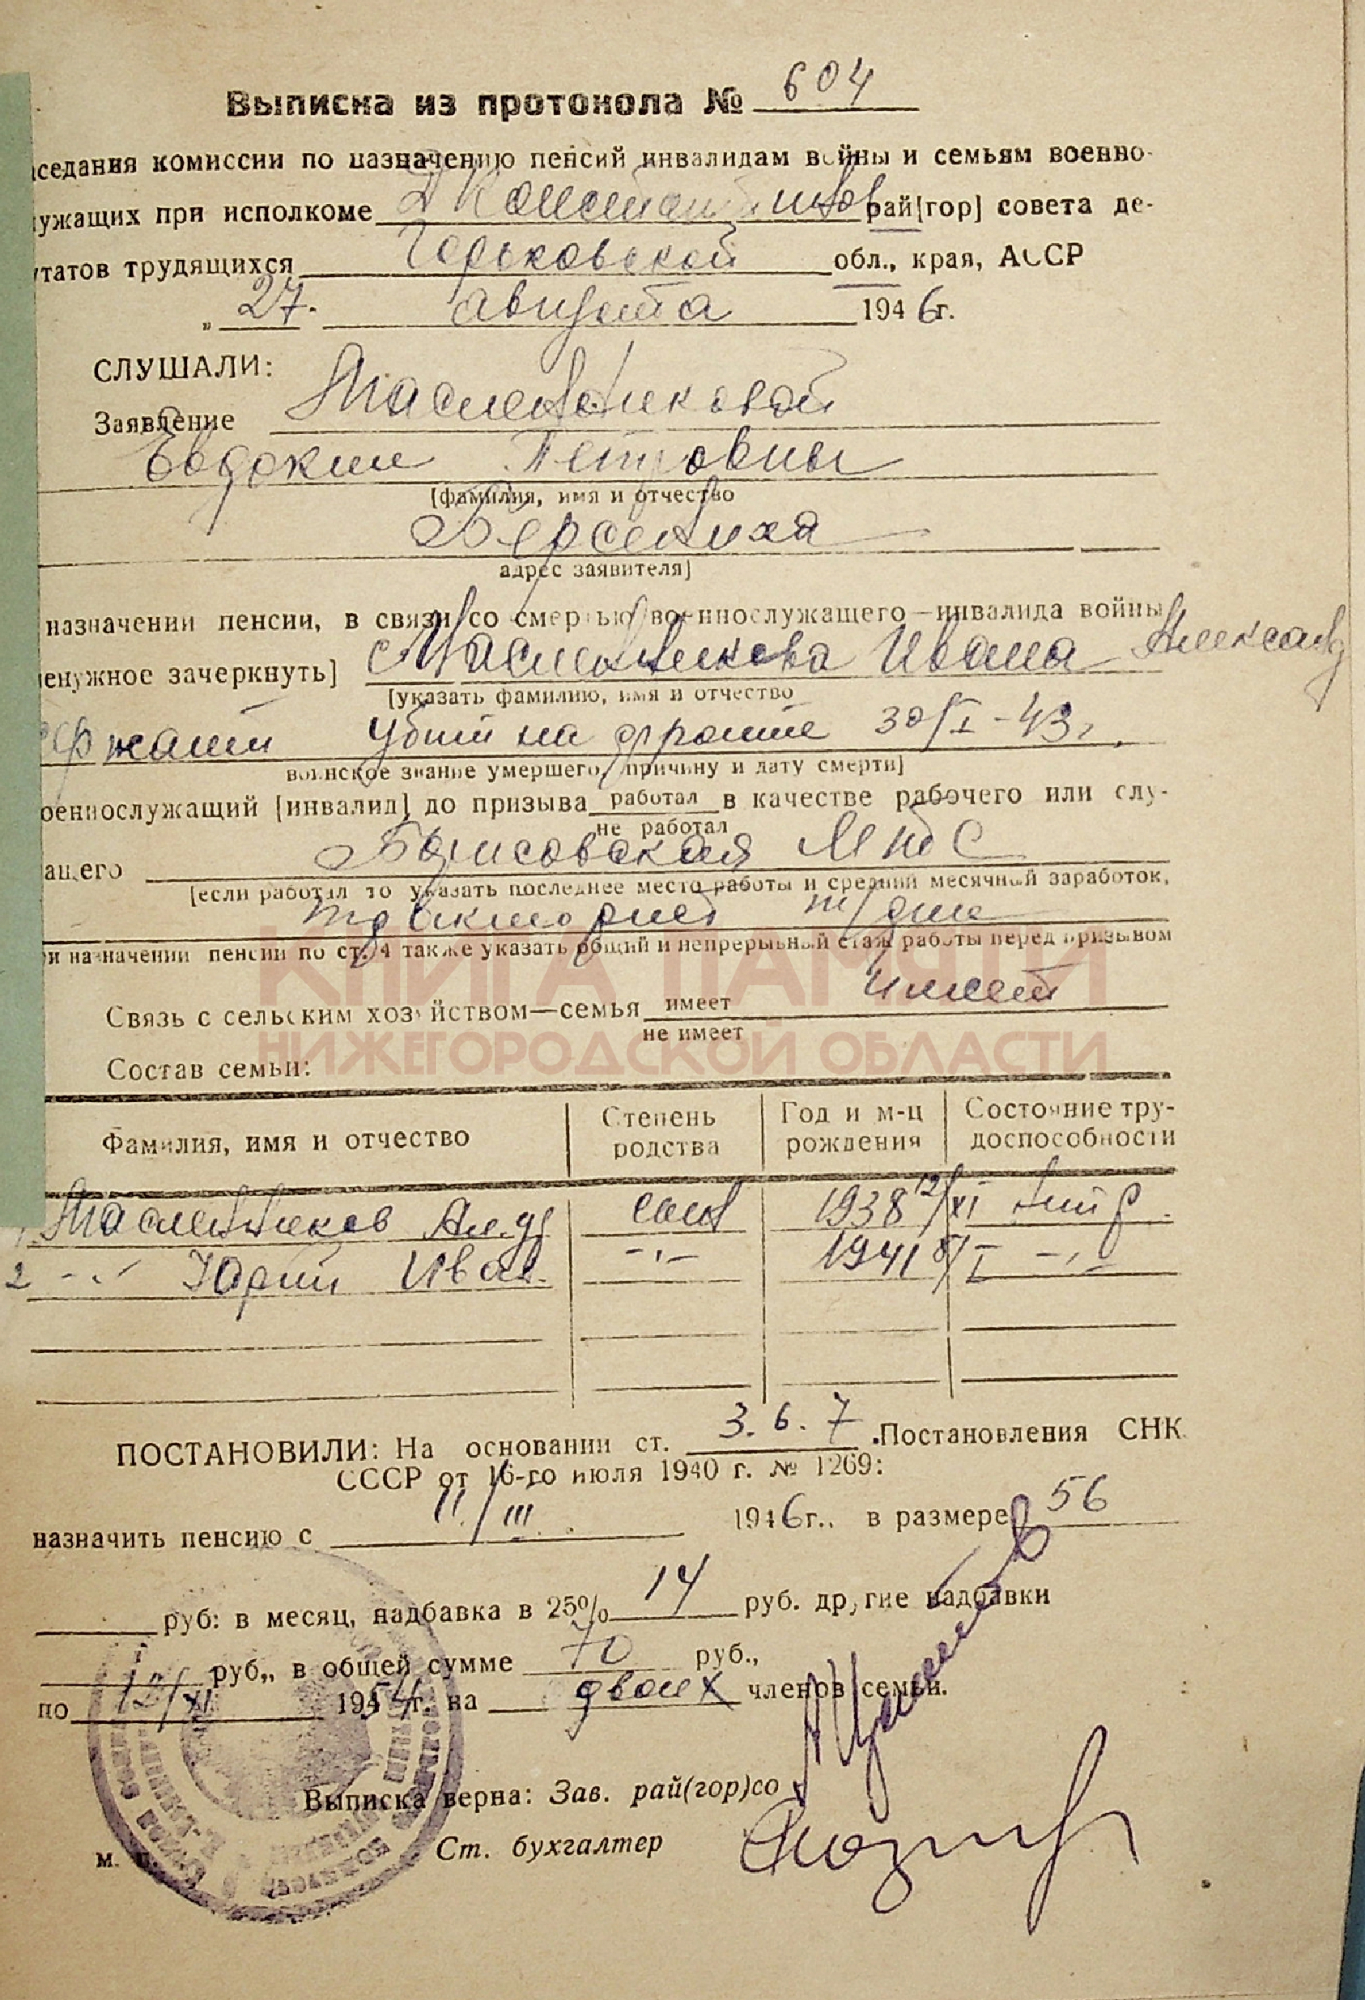 Выписка из протокола № 604
аседания комиссии по назначению пенсий инвалидам войны и семьям военно-
ужащих при исполкоме Д Константинов рай[гор] совета де-
утатов трудящихся Горьковской обл., края, АССР
„ 27. августа 1946г.
СЛУШАЛИ:
Заявление Масленниковой
Евдокии Петровны
[фамилия, имя и отчество
Берсениха
адрес заявителя]
назначении пенсии, в связи со смертью военнослужащего—инвалида войны
енужное зачеркнуть] Масленникова Ивана Александ
[указать фамилию, имя и отчество
ержант убит на фронте 30/I-43г.
воинское звание умершего, причину и дату смерти]
оеннослужащий [инвалид] до призыва работал в качестве рабочего или слу-
не работал
ащего Борисовская МТС
[если работал то указать последнее место работы и средний месячный заработок,
тракторист
и назначении пенсии по ст. 4 также указать общий и непрерывный стаж работы перед призывом
КНИГА ПАМЯТИ
Связь с сельским хозяйством—семья имеет имеет
не имеет
НИЖЕГОРОДСКОЙ ОБЛАСТИ
Состав семьи:
Фамилия, имя и отчество Степень родства Год и м-ц рождения Состояние тру-доспособности
1 Масленников Ал-др сын 1938 12/XI нетр.
2 -„- Юрий Иван. -„- 1941 8/I -„-
ПОСТАНОВИЛИ: На основании ст. 3. 6. 7 .Постановления СНК
СССР от 16-го июля 1940 г. № 1269:
назначить пенсию с 11/III 1946г.. в размере 56
руб: в месяц, надбавка в 25% 14 руб. другие надбавки
руб„ в общей сумме 70 руб.,
по 12/XI 1954г. на двоих членов семьи.
Выписка верна: Зав. рай(гор)со
м. Ст. бухгалтер